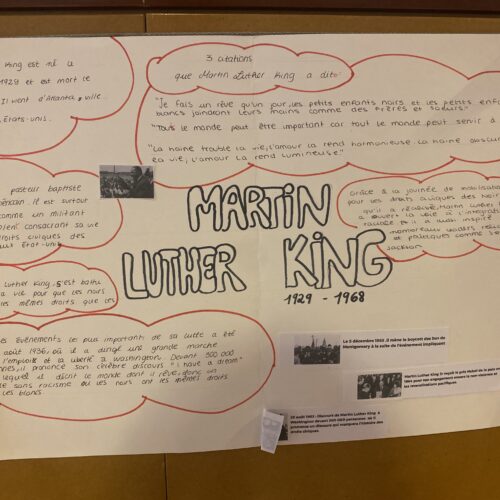 King est né le
1929 et est mort le
Il vient d'Atlanta, ville
États-unis.
3 citations
que Martin Luther King a dite
"Je fais un rêve qu'un jour, les petits enfants noirs et les petits enf
blancs joindront leurs mains comme des frères et soeurs."
"Tous le monde peut être important car tout le monde peut servir à
"La haine trouble la vie; l'amour la rend harmonieuse. La haine obscur
la vie; l'amour la rend lumineuse."
pasteur baptiste
Il est surtout
comme un militant
consacrant sa vie
droits civiques des
États-Unis.
MARTIN
LUTHER KING
1929 - 1968
Grâce à la journée de mobilisat
pour les droits civiques des Noirs
qu'il a réalisé, Martin Luther
a ouvert la voie à l'intégrat
raciale et il a aussi inspiré
nombreux leaders
et politiques comme
Jackson.
Luther King, s'est battu
a vie pour que les noirs
les mêmes droits que
es événements les plus important de sa lutte a été
août 1936, où il a dirigé une grande marche
l'emploi et la liberté à Washington. Devant 300 000
il prononce son célèbre discours "I have a dream"
lequel il décrit le monde dont il rêve, donc un
sans racisme où les noirs ont les mêmes droits
les blancs.
Le 5 décembre 1955, il mène le boycott des bus de
Montgomery à la suite de l'événement impliquant
Martin Luther King Jr reçoit le prix Nobel de la paix en
1964 pour son engagement envers la non-violence et
les revendications pacifiques.
28 août 1963 : Discours de Martin Luther King à
Washington devant 250 000 personnes.
prononce un discours qui marquera l'histoire des
droits civiques.